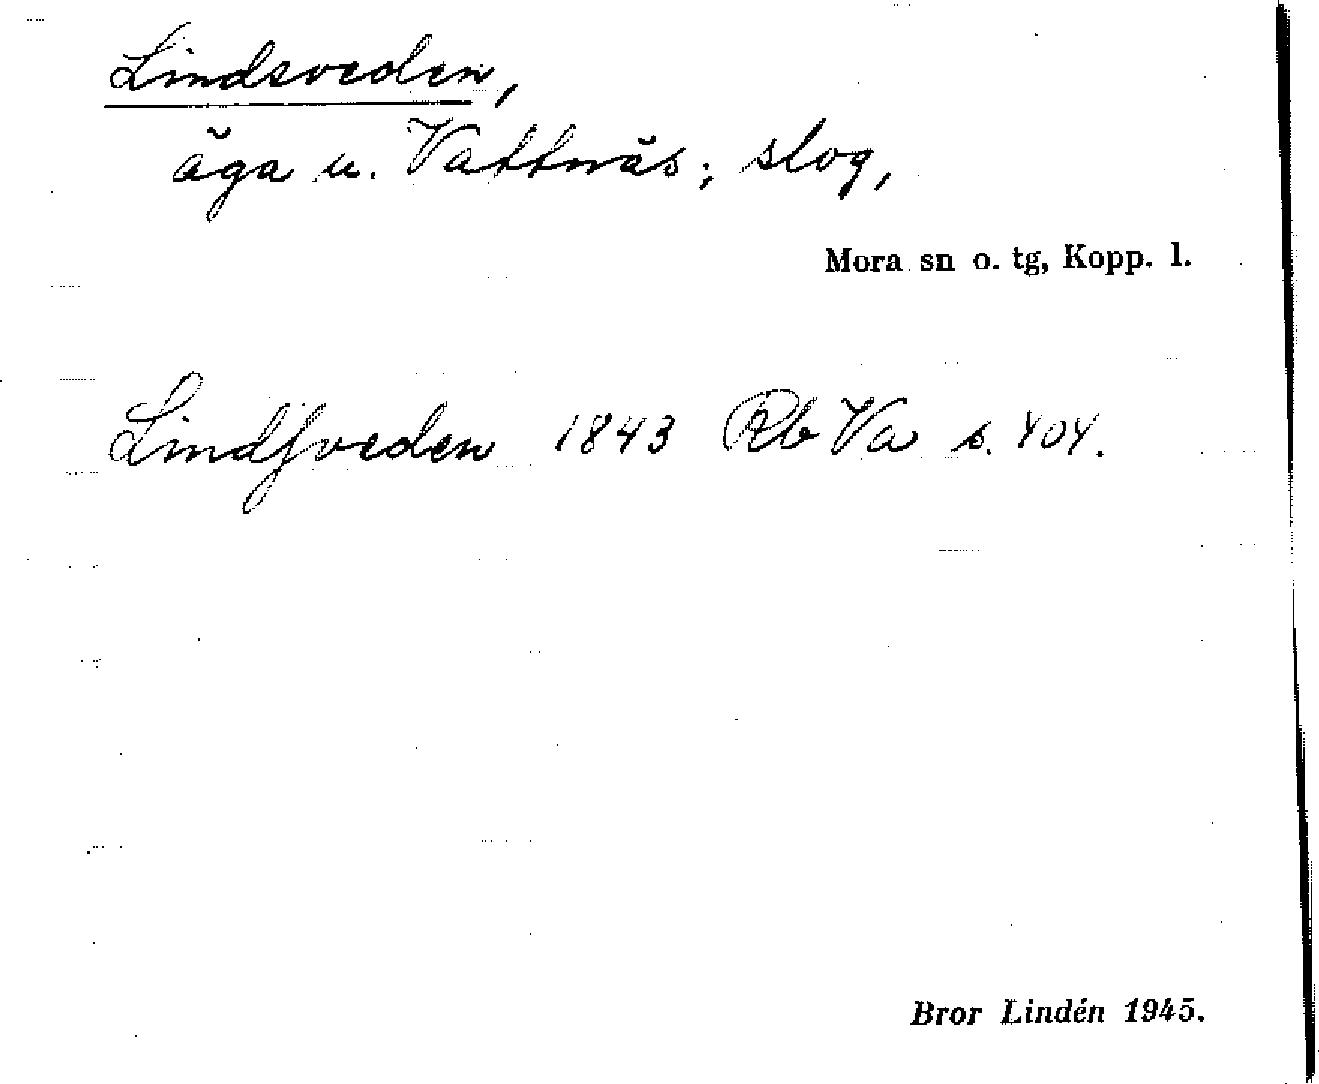 Lindsveden,
äga u. Vattnäs; slog,
Mora sn o. tg, Kopp. l.
Lindſveden 1843 Rb Va s. 404.
Bror Lindén 1945.